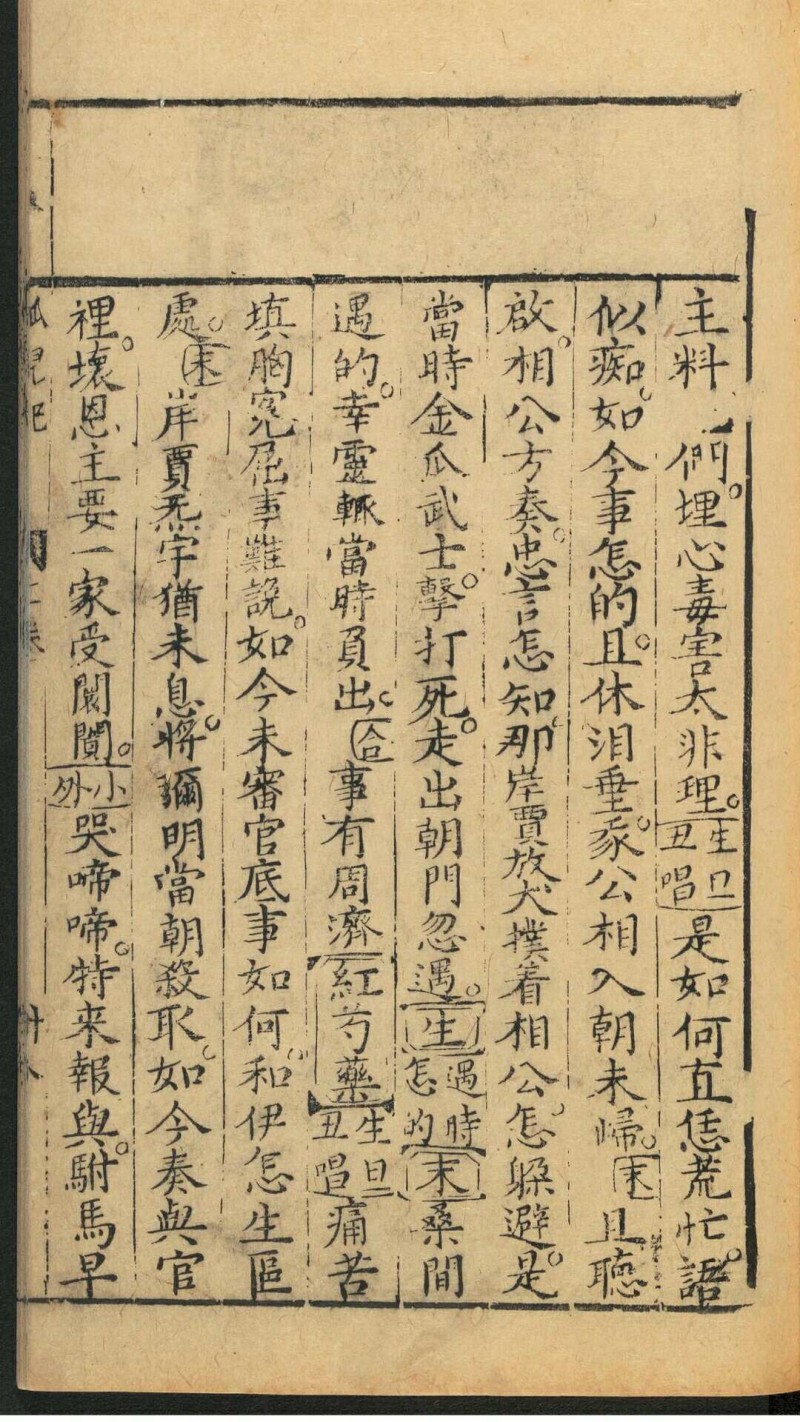 主料 們。埋心毒害太非理。生旦丑唱是如何直恁荒忙。語
似痴。如今事怎的。且休泪垂。家公相入朝未歸。末且聽
啟。相公方奏。忠言怎知那岸賈放犬撲着相公。怎躱避。是
當時金瓜武士擊。打死。走出朝門忽遇。生遇時怎的末桑間
遇的。幸靈輒當時負出。合事有周濟紅芍藥生旦丑唱痛苦
填胸寃屈事難說。如今未審官底事如何。和伊怎生區
處。末岸賈炁宇猶未息。將彌明當朝殺取。如今奏與官
裡。壞恩主要一家受闌䦨。小外哭啼啼。特来報與。駙馬早
孤兒把 二卷 卅八